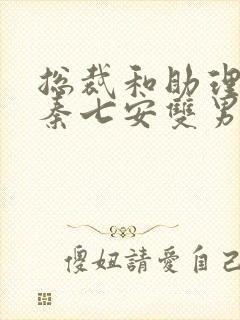 总裁和助理
秦七安雙男
傻妞請愛自己